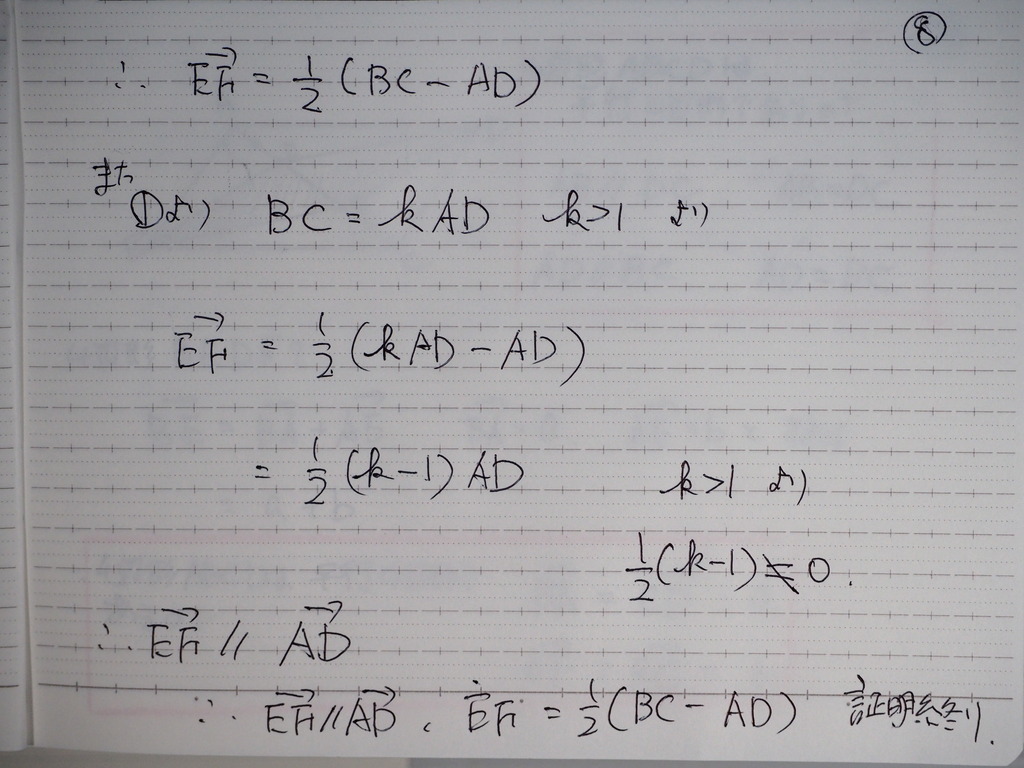 ⑧
∴ $\overrightarrow{EF} = \frac{1}{2}(BC - AD)$
また
①より BC = kAD k>1 より
$\overrightarrow{EF} = \frac{1}{2}(kAD - AD)$
$= \frac{1}{2}(k-1)AD$ k>1 より
$\frac{1}{2}(k-1) \neq 0.$
∴ $\overrightarrow{EF} // \overrightarrow{AD}$
∴ $\overrightarrow{EF} // \overrightarrow{AD}$、$EF = \frac{1}{2}(BC - AD)$ 証明終り.